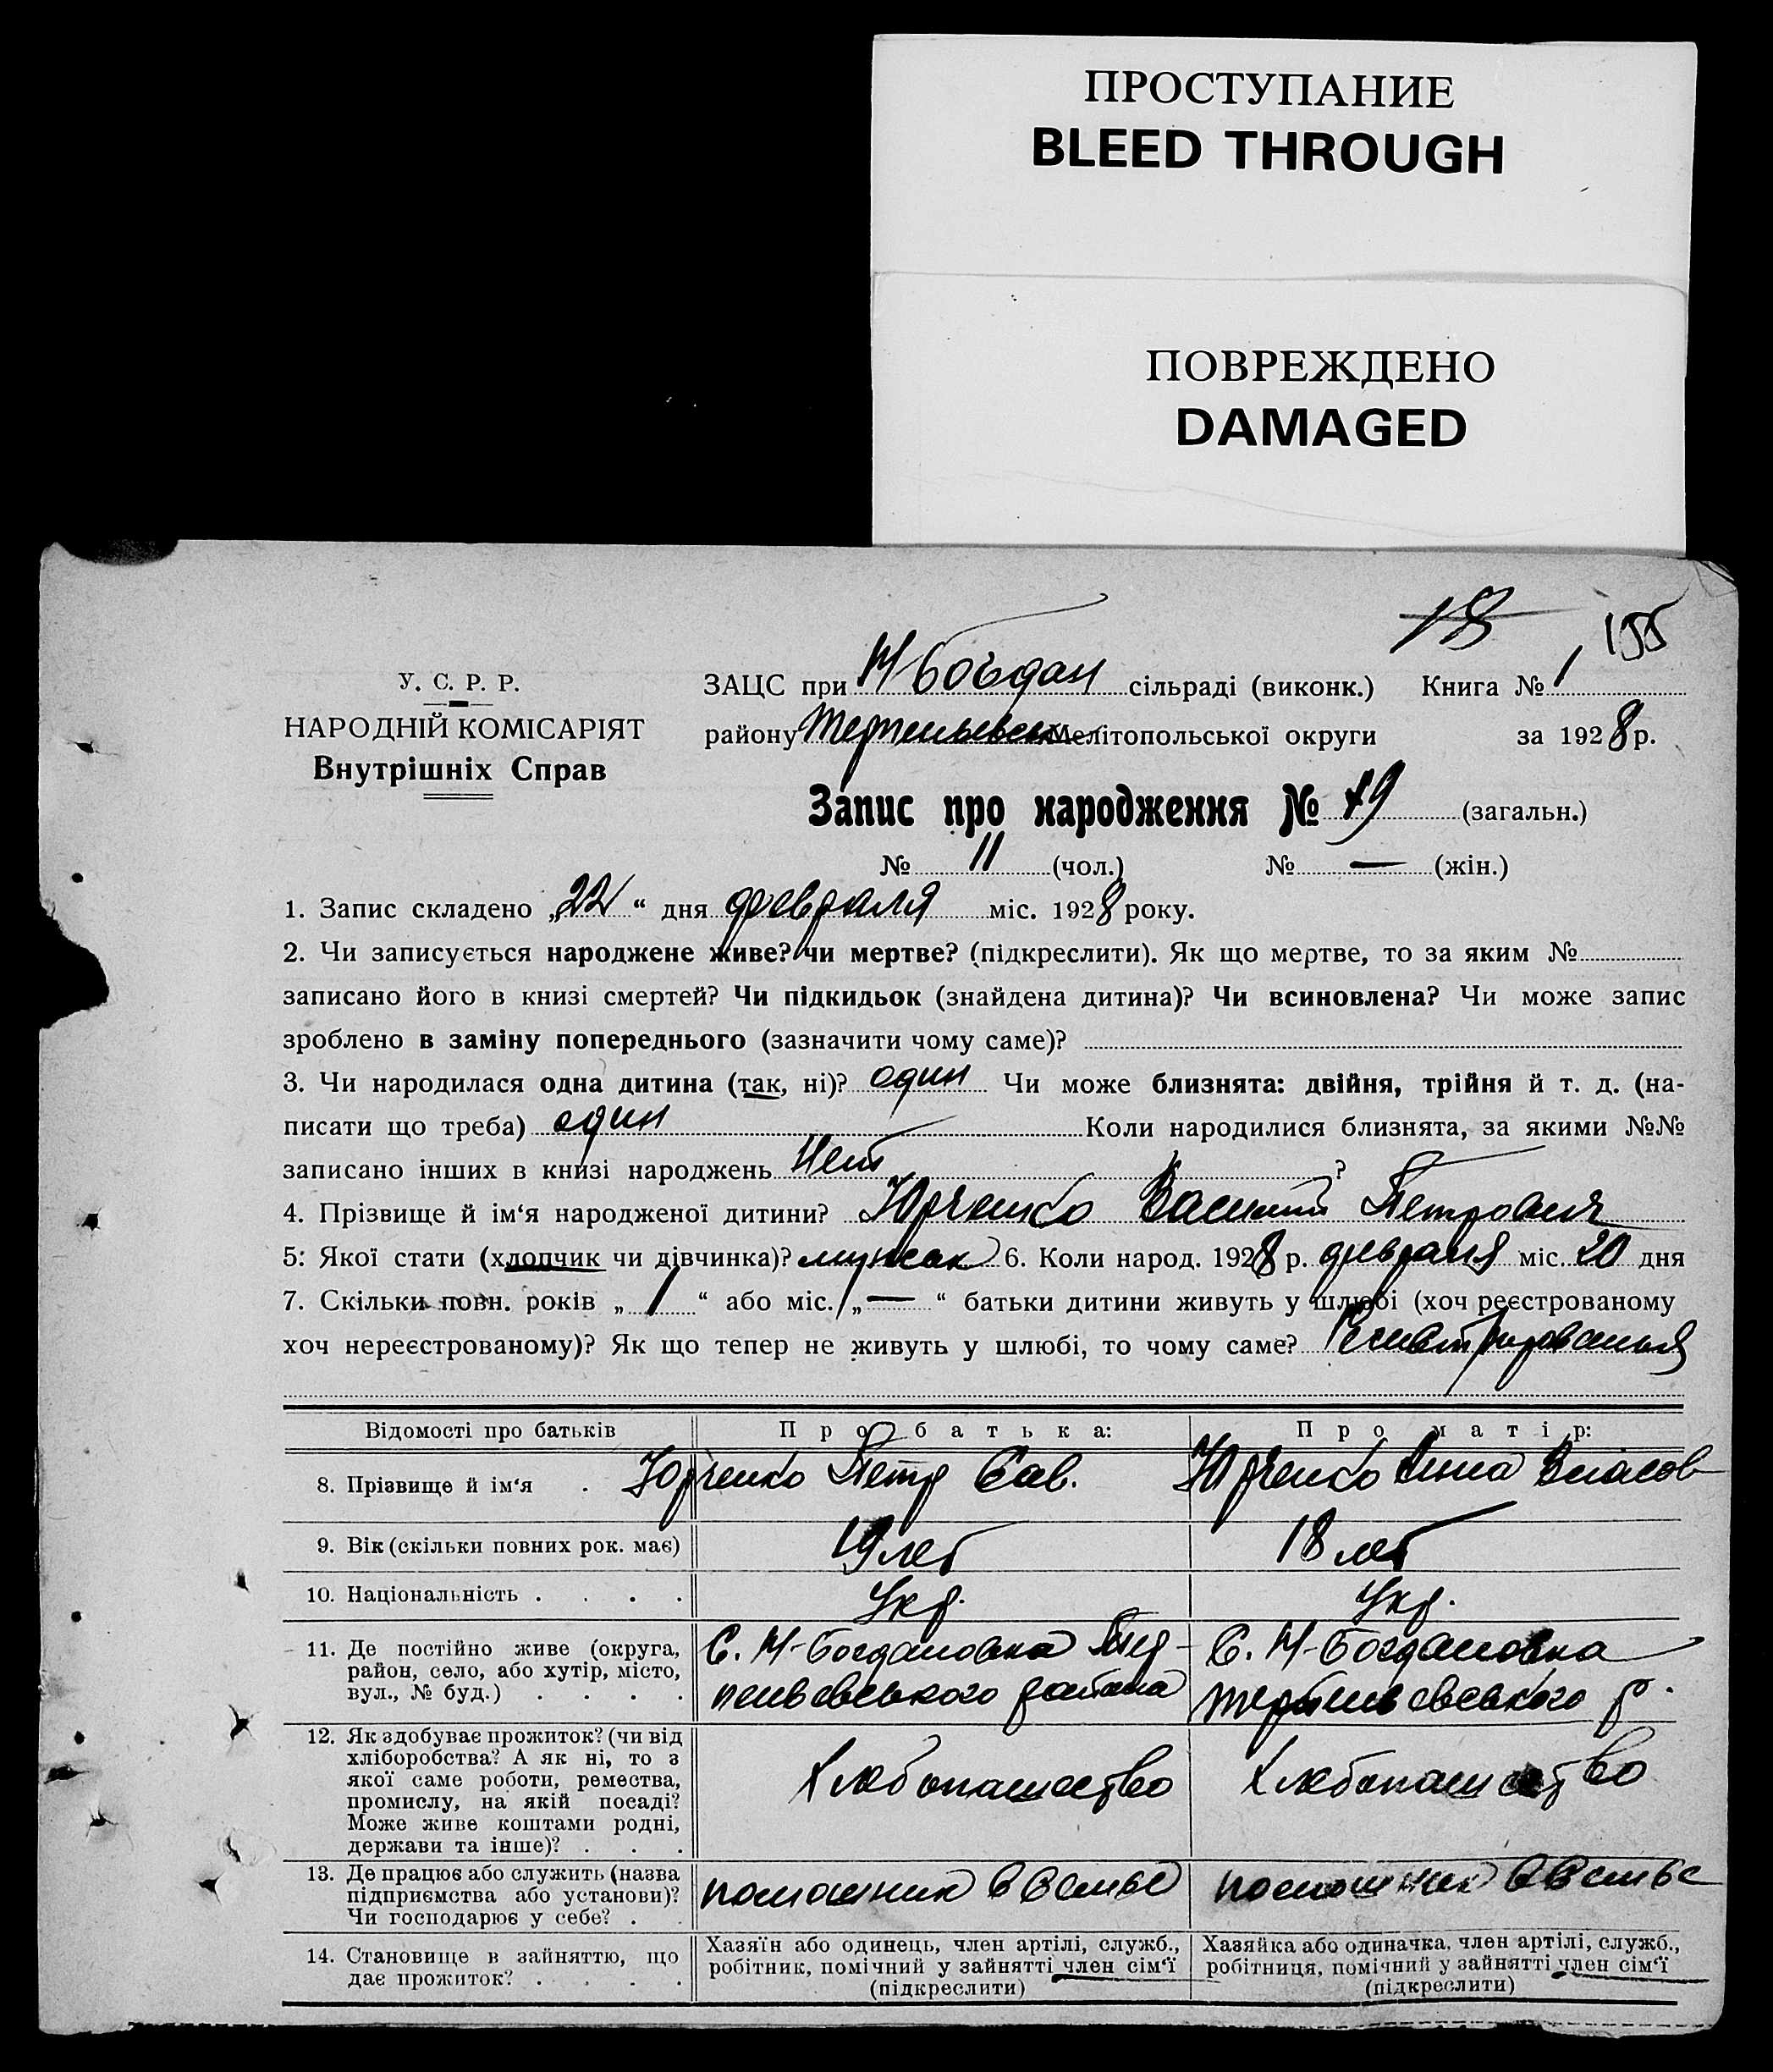 ПРОСТУПАНИЕ
BLEED THROUGH
ПОВРЕЖДЕНО
DAMAGED
18 155
У. С. Р. Р.
НАРОДНІЙ КОМІСАРІЯТ
Внутрішніх Справ
ЗАЦС при М Богдан сільраді (виконк.) Книга № 1
району Мелітопольської округи за 1928 р.
Запис про народження № 19 (загальн.)
№ 11 (чол.) № — (жін.)
1. Запис складено „22“ дня февраля міс. 1928 року.
2. Чи записується народжене живе? чи мертве? (підкреслити). Як що мертве, то за яким №
записано його в книзі смертей? Чи підкидьок (знайдена дитина)? Чи всиновлена? Чи може запис
зроблено в заміну попереднього (зазначити чому саме)?
3. Чи народилася одна дитина (так, ні)? один Чи може близнята: двійня, трійня й т. д. (на-
писати що треба) один Коли народилися близнята, за якими №№
записано інших в книзі народжень Нет ?
4. Прізвище й ім‘я народженої дитини? Юрченко Василий Петрович
5: Якої стати (хлопчик чи дівчинка)? 6. Коли народ. 1928 р. февраля міс. 20 дня
7. Скільки повн. років „ 1 “ або міс. „ — “ батьки дитини живуть у шлюбі (хоч реєстрованому
хоч нереєстрованому)? Як що тепер не живуть у шлюбі, то чому саме?
Відомості про батьків Про батька: Про матір:
8. Прізвище й ім‘я . Юрченко Петр Сав. Юрченко Анна Власов
9. Вік (скільки повних рок. має) 19 лет 18 лет
10. Національність . . . . Укр. Укр.
11. Де постійно живе (округа,
район, село, або хутір, місто,
вул., № буд.) . . . .
С. М-Богдановка
района
С. М-Богдановка
р.
12. Як здобуває прожиток? (чи від
хліборобства? А як ні, то з
якої саме роботи, ремества,
промислу, на якій посаді?
Може живе коштами родні,
держави та інше)? . . .
Хлебопашество Хлебопашество
13. Де працює або служить (назва
підприємства або установи)?
Чи господарює у себе? . .
помошник в семье помошник в семье
14. Становище в зайняттю, що
дає прожиток? . . . .
Хазяїн або одинець, член артілі, служб.,
робітник, помічний у зайнятті член сім‘ї
(підкреслити)
Хазяйка або одиначка, член артілі, служб.,
робітниця, помічний у зайнятті член сім‘ї
(підкреслити)